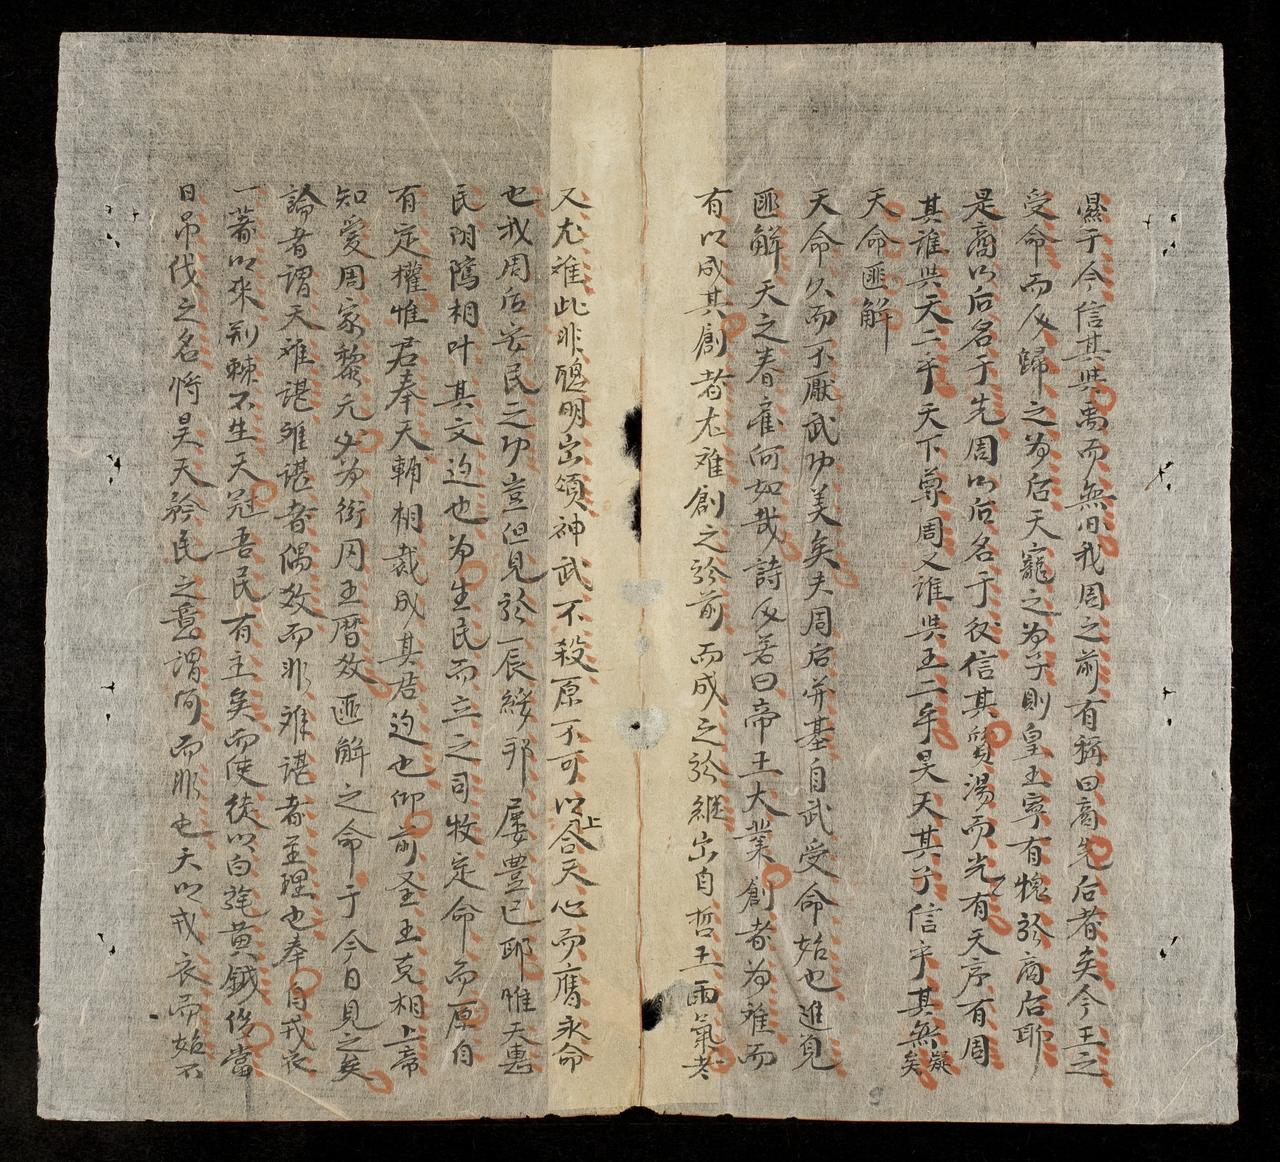 于今信其與禹而無旧我周之前有稱曰商先后者矣今王之
受命而必歸之為后天寵之為子則皇王寧有愧於商后耶
是商以后名于先周以后名于後信其質湯而光有天序有周
其誰與天二乎天下尊周又誰與王二乎昊天其子信乎其無疑矣
天命匪解
天命久而不厭武功美矣夫周后并基自武受命始也進覓
匪解天之眷雇何如哉詩必著曰帝王大業創者為难而
有以成其創者尤难創之於前而成之於継出自哲王雨氣老
又尤难此非聰明出領神武不殺原不可以上合天心而膺永命
也我周后安民之功豈但見於一辰綏邪屡豊已耶惟天惠
民阴隲相叶其文迩也為生民而立之司牧定命而原自
有定權惟君奉天輔相裁成其居迩也仰前圣王克相上帝
知爱周家黎元必為衔囚王暦效匪解之命于今日見之矣
論者謂天难谌难谌者偶效而非难谌者至理也奉自戎衣
一著以來荊棘不生天冠吾民有主矣而使徒以白旄黄鉞侈當
日吊伐之名将昊天矜民之意謂何而非也天以戎衣而始不